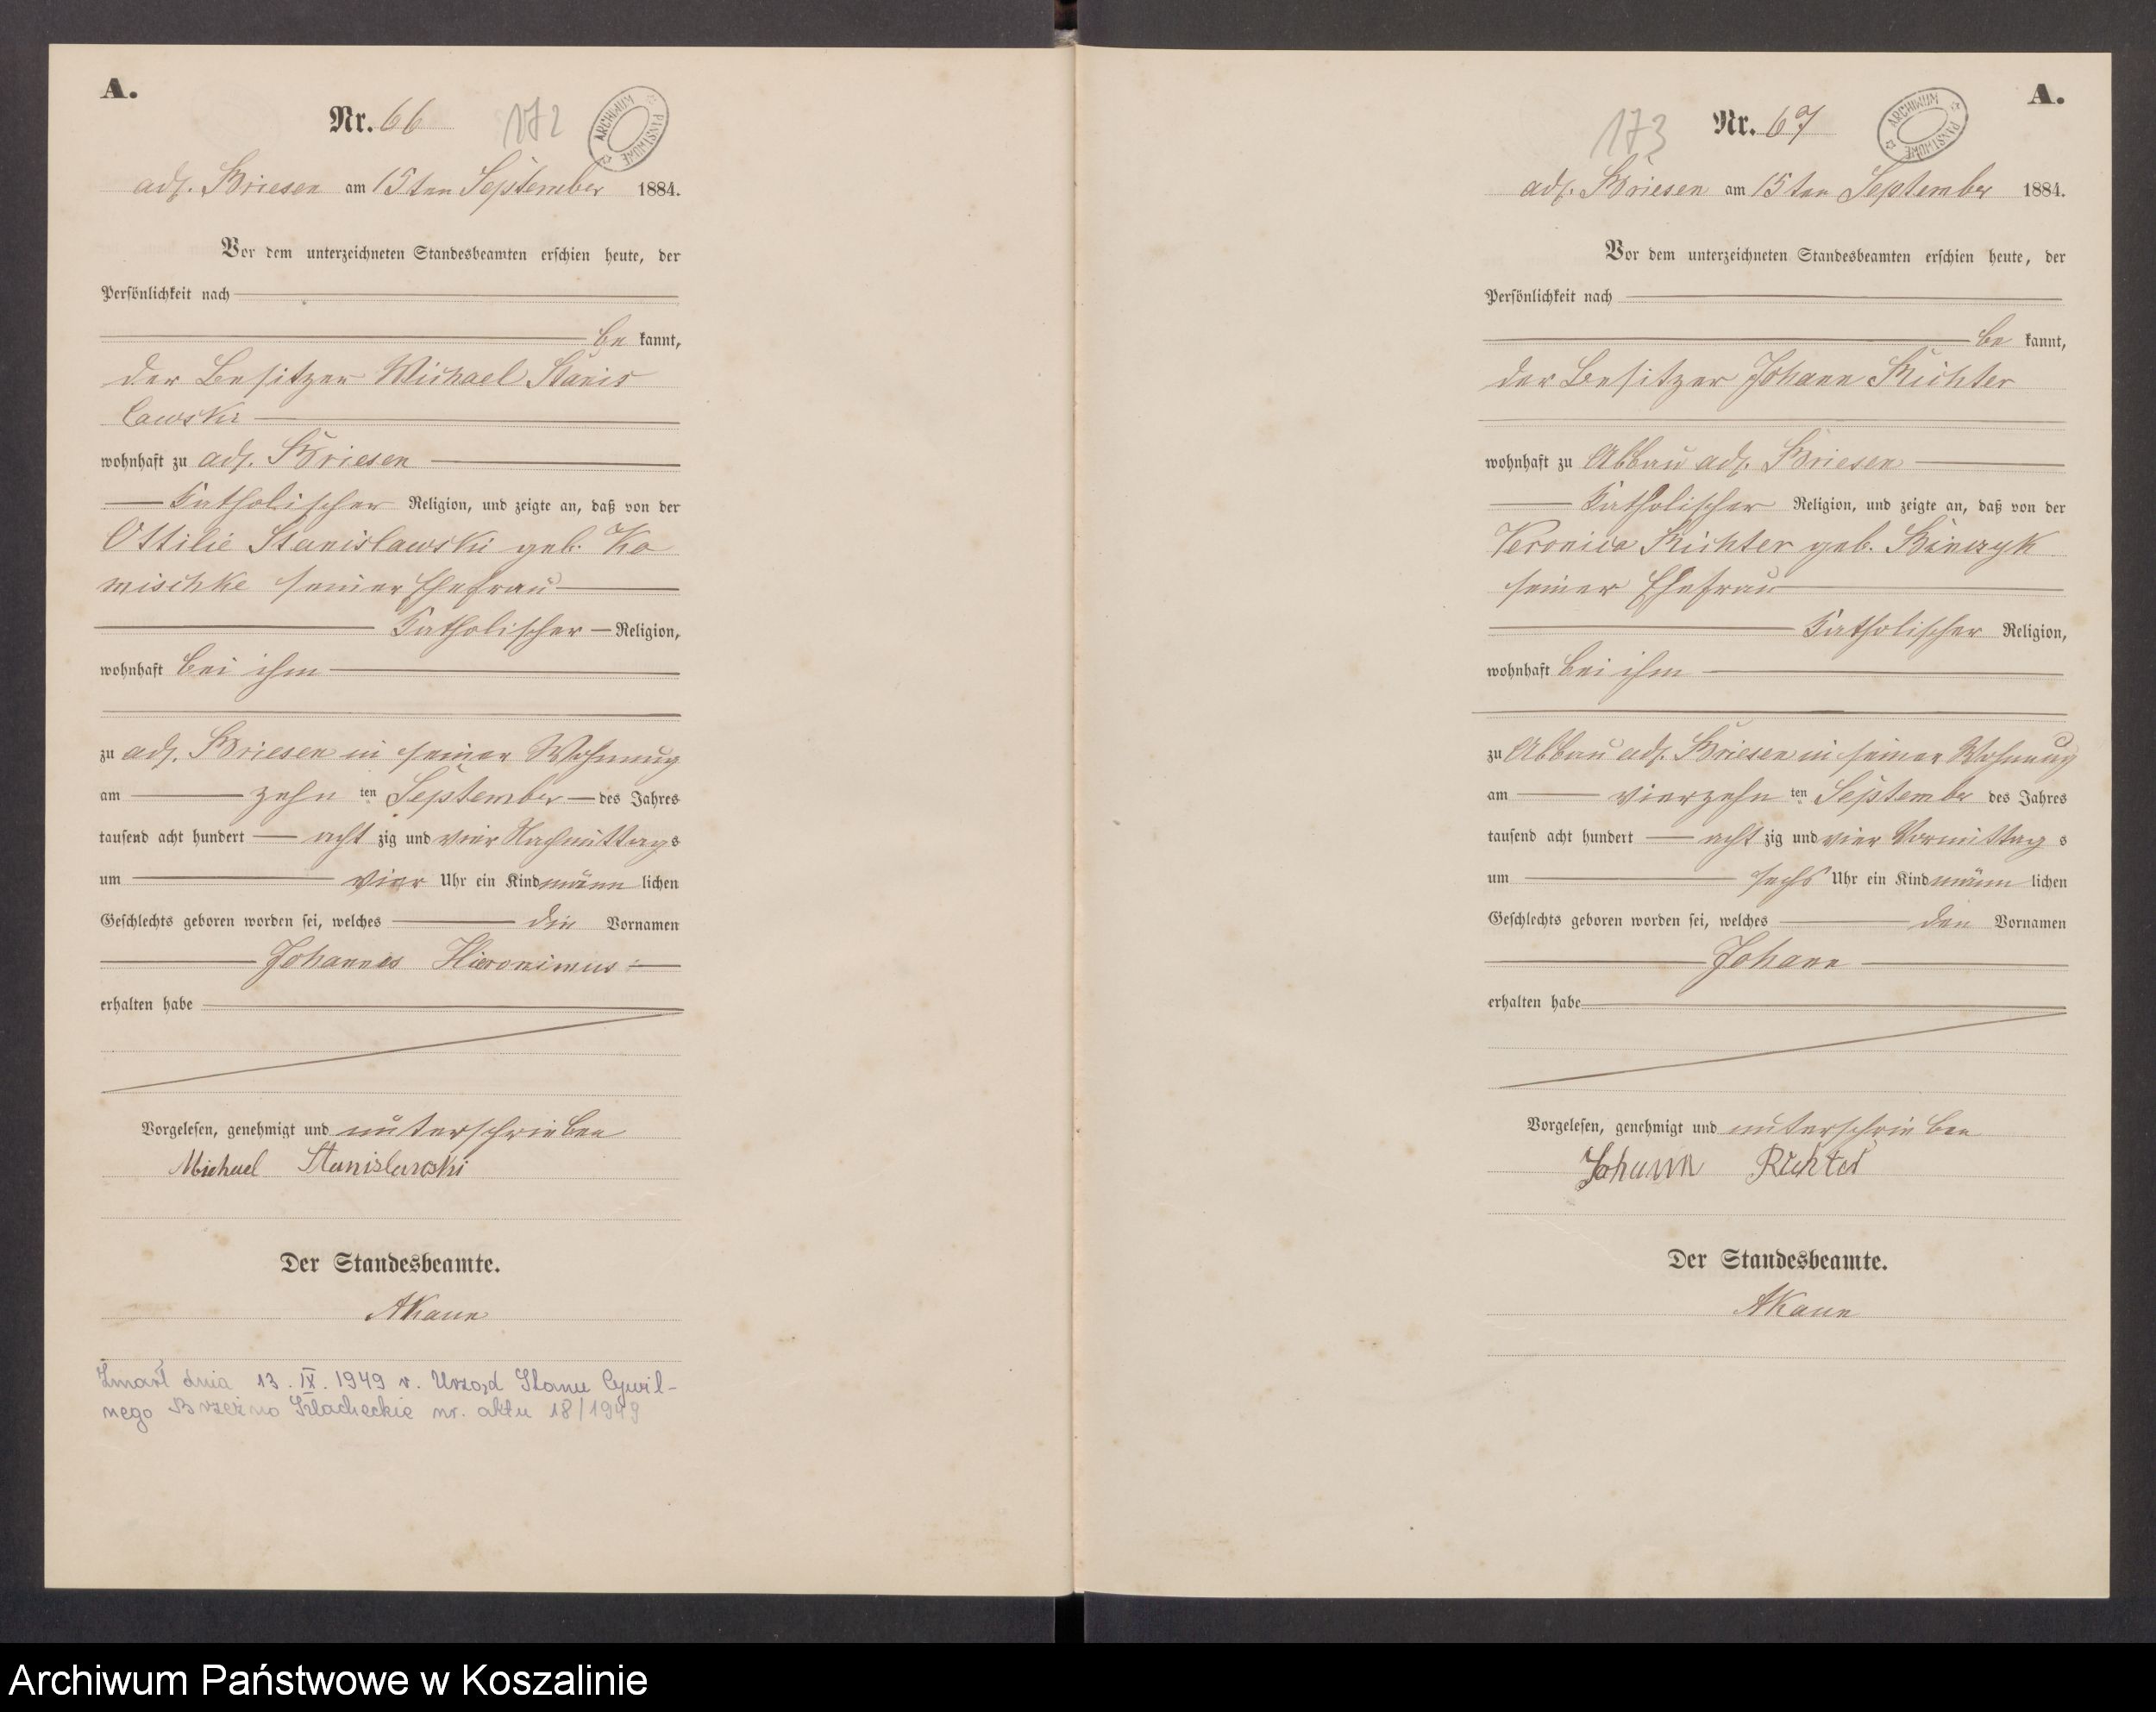 A.
Nr. 66
172
ARCHIWUM PAŃSTWOWE
adl. Briesen am 15ten September 1884.
Vor dem unterzeichneten Standesbeamten erschien heute, der
Persönlichkeit nach
be kannt,
der Besitzer Michael Stanis
lawski
wohnhaft zu adl. Briesen
katholischer Religion, und zeigte an, daß von der
Ottilie Stanislawski geb. Ko
mischke seiner Ehefrau
katholischer Religion,
wohnhaft bei ihm
zu adl. Briesen in seiner Wohnung
am zehn ten September des Jahres
tausend acht hundert acht zig und vier Nachmittags
um vier Uhr ein Kind männ lichen
Geschlechts geboren worden sei, welches die Vornamen
Johannes Hieronimus
erhalten habe
Vorgelesen, genehmigt und unterschrieben
Michael Stanislawski
Der Standesbeamte.
Zmarł dnia 13. IX. 1949 r. Urząd Stanu Cywil-
nego Brzeźno Szlacheckie nr. aktu 18/1949
A.
173
Nr. 67
ARCHIWUM PAŃSTWOWE
adl. Briesen am 15ten September 1884.
Vor dem unterzeichneten Standesbeamten erschien heute, der
Persönlichkeit nach
be kannt,
der Besitzer Johann Richter
wohnhaft zu Abbau adl. Briesen
katholischer Religion, und zeigte an, daß von der
Veronica Richter geb.
seiner Ehefrau
katholischer Religion,
wohnhaft bei ihm
zu Abbau adl. Briesen in seiner Wohnung
am vierzehn ten September des Jahres
tausend acht hundert acht zig und vier Vormittag s
um sechs Uhr ein Kind männ lichen
Geschlechts geboren worden sei, welches den Vornamen
Johann
erhalten habe
Vorgelesen, genehmigt und unterschrieben
Johann Richter
Der Standesbeamte.
Archiwum Państwowe w Koszalinie